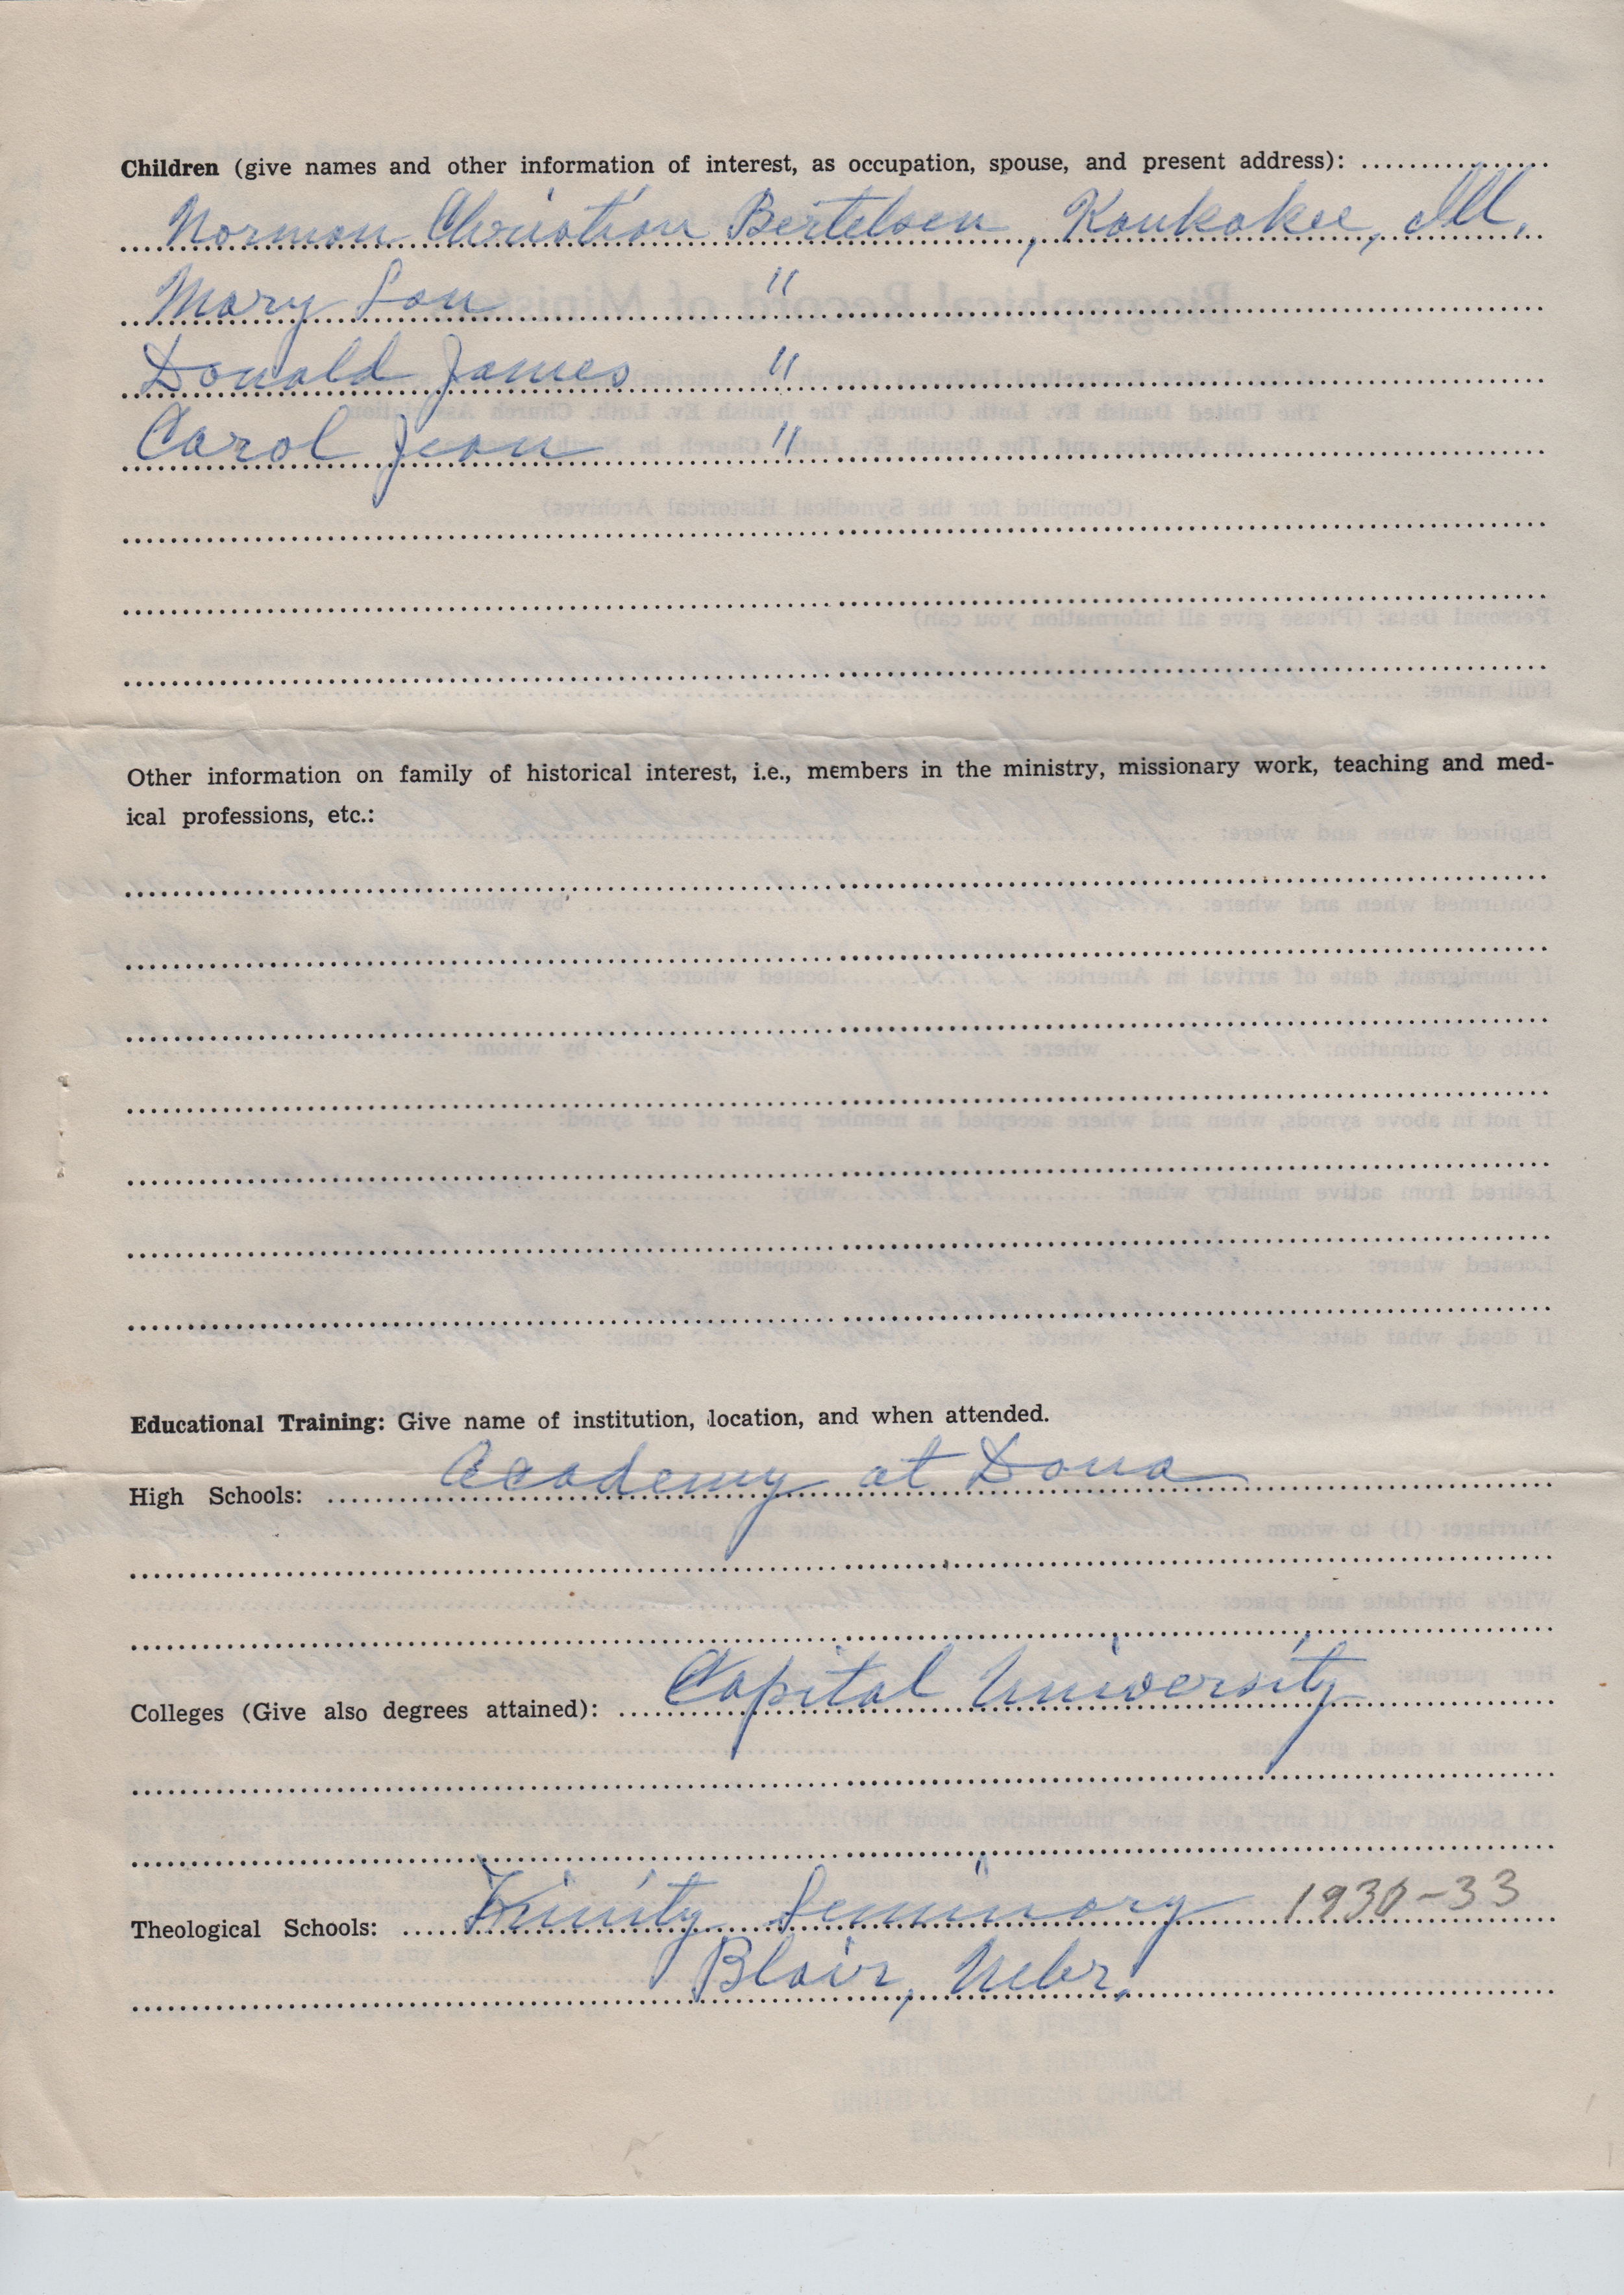 Children (give names and other information of interest, as occupation, spouse, and present address):
Norman Christian Bertelsen, Kankakee, Ill.
Mary Lou "
Donald James "
Carol Jean "
Other information on family of historical interest, i.e., members in the ministry, missionary work, teaching and med-
ical professions, etc.:
Educational Training: Give name of institution, location, and when attended.
High Schools: Academy at Dana
Colleges (Give also degrees attained): Capital University
Theological Schools: Trinity Seminary 1930-33
Blair, Nebr.